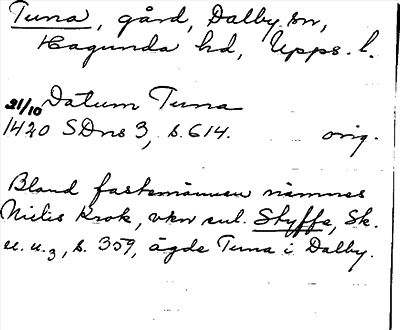 Tuna, gård, Dalby sn,
Hagunda hd, Upps. l.
21/10 Datum Tuna
1420 SDns 3, s. 614. orig.
Bland fastemännen nämnes
Nielis Krok, vkn enl. Styffe, Sk.
u. u.3, s. 359, ägde Tuna i Dalby.